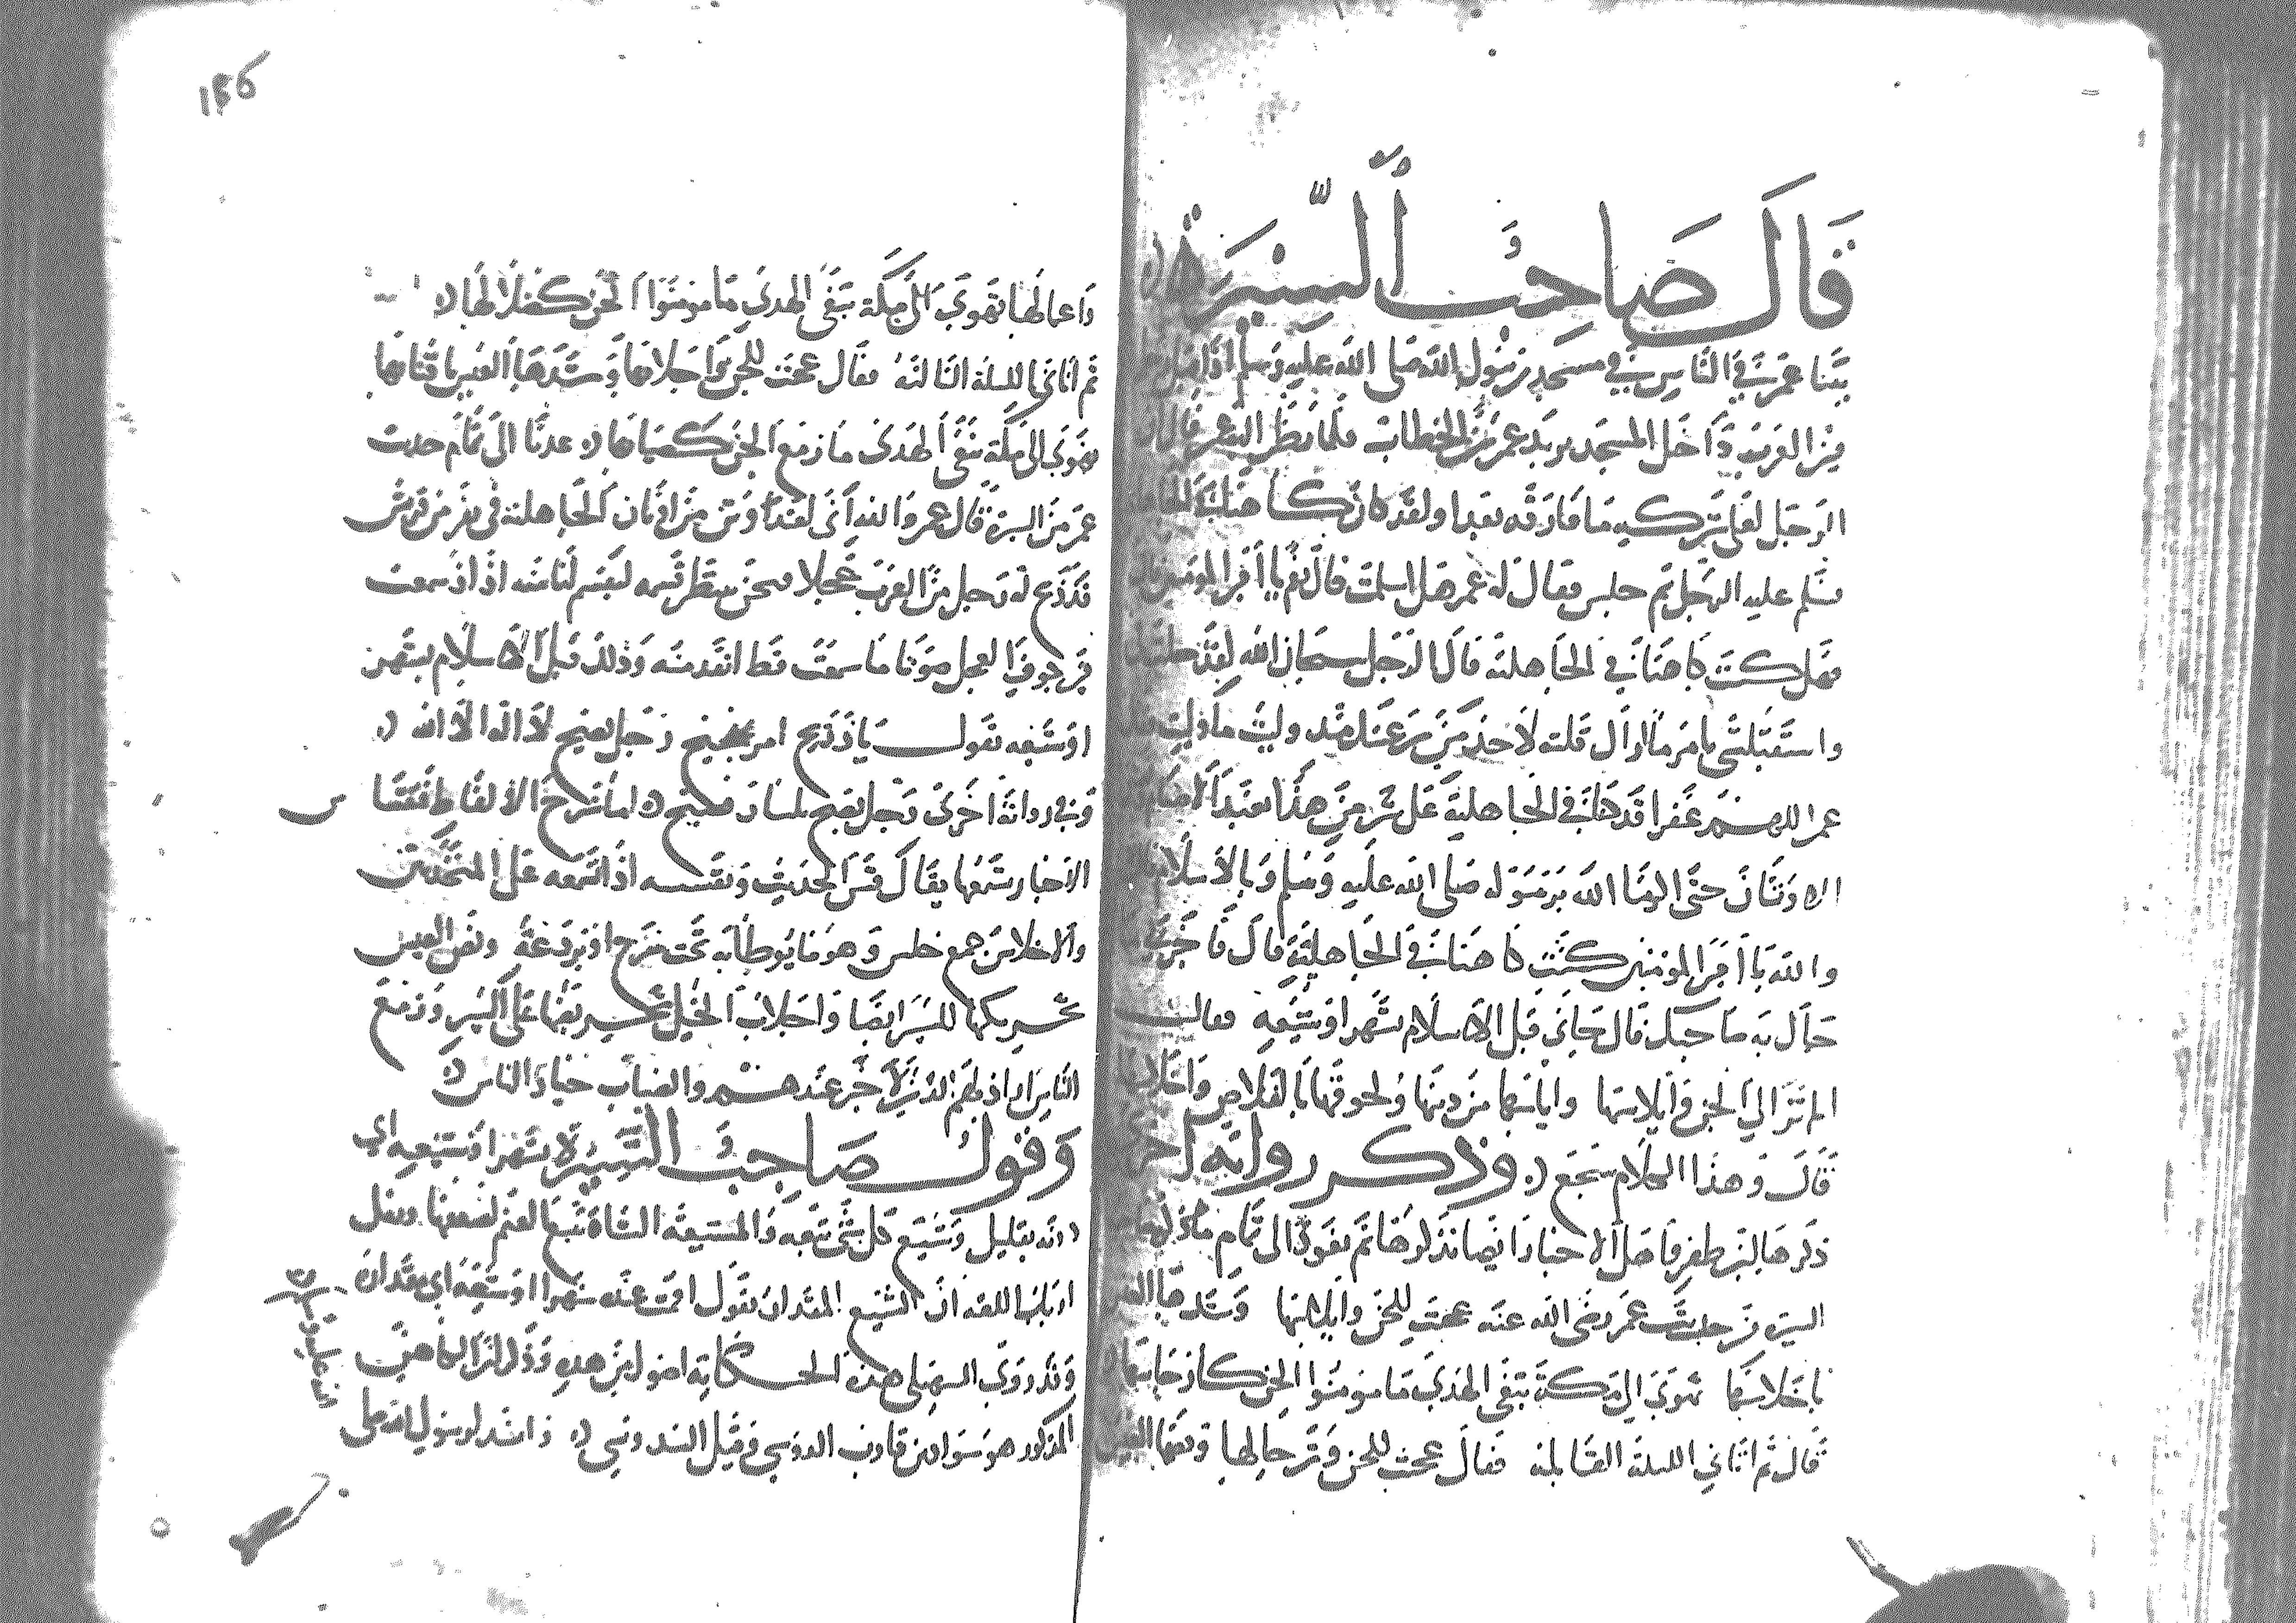 قَالَ صَاحِبُ السِّيرَة
بينا عمر في الناس في مسجد رسول الله صلى الله عليه وسلم اذ اقبل رجل
من العرب داخل المسجد يريد عمر بن الخطاب فلما نظر اليه عمر قال ان
الرجل لعلى شركه ما فارقه بعد او لقد كان كاهنا في الجاهلية
فسلم عليه الرجل ثم جلس فقال له عمر هل اسلمت قال نعم يا امير المومنين قال
فهل كنت كاهنا في الجاهلية قال الرجل سبحان الله لقد خلت في
واستقبلتني بامر ما اراك قلته لاحد من رعيتك منذ وليت ما وليت فقال
عمر اللهم غفرا قد كنا في الجاهلية على شر من هذا نعبد الاصنام
الاوثان حتى اكرمنا الله برسوله صلى الله عليه وسلم وبالاسلام قال
والله يا امير المومنين كنت كاهنا في الجاهلية قال فاخبرني ما
جاك به صاحبك قال جاني قبل الاسلام بشهر او شيعه فقالت
الم تر الى الجن وابلاسها واياسها من دينها ولحوقها بالقلاص واحلاسها
قال وهذا الكلام سجع وذكر رواية اخرى
ذكرها ابن ظفر واهل الاخبار ايضا نذكرها ثم نعود الى تمام ما ذكره
السيرة من حديث عمر رضي الله عنه عجبت للجن وابلاسها وشدها العيس
باحلاسها تهوى الى مكة تبغي الهدى ما مومنوا الجن كارجاسها
قال ثم اتاني الليلة القابلة فقال عجبت للجن وترحالها وشدها العيس
واعمالها تهوى الى مكة تبغى الهدى ما مومنوا الجن ككفارها
ثم اتاني الليلة الثالثة فقال عجبت للجن واجلابها وشدها العيس باقتابها
تهوى الى مكة تبغي الهدى ما زمع الجن كصيابها عدنا الى تمام حديث
عمر من السيرة قال عمر والله اني لعند وثن من اوثان الجاهلية في نفر من قريش
قد ذبح له رجل من العرب عجلا فنحن ننتظر قسمه ليقسم لنا منه اذ سمعت
من جوف العجل صوتا ما سمعت قط انفذ منه وذلك قبل الاسلام بشهر
او شيعه يقول يا ذريح امر نجيح رجل يصيح لا اله الا الله
وفي رواية اخرى رجل يصيح بلسان فصيح اما شرح الالفاظ فقسا
الاخبار شمعها يقال قس الحديث وتقسسه اذا تسمعه على المتحدثين
والاحلاس جمع حلس وهو ما يوطا به تحت سرج او بردعة ونص العيس
تحريكها للسير ايضا واجلاب الخيل تحريضها على السير وزمع
الناس اراذلهم الذين لا خير عندهم والصياب خيار الناس
وَقَوْلُ صَاحِبِ السِّيرَة بشهر او شيعه اي
دونه بقليل وشيع كل شي تبعه والمتشيعه الشاة تتبع الغنم لضعفها ونقل
ارباب اللغه ان الشيع المقدار يقول اقمت عنده شهرا او شيعه اي مقداره
وقد روى السهيلي هذه الحكاية اطول من هذه وذكر ان الكاهن
المذكور هو سواد بن قارب الدوسي وقيل السدوسي وانشد لرسول الله صلى
الله عليه وسلم